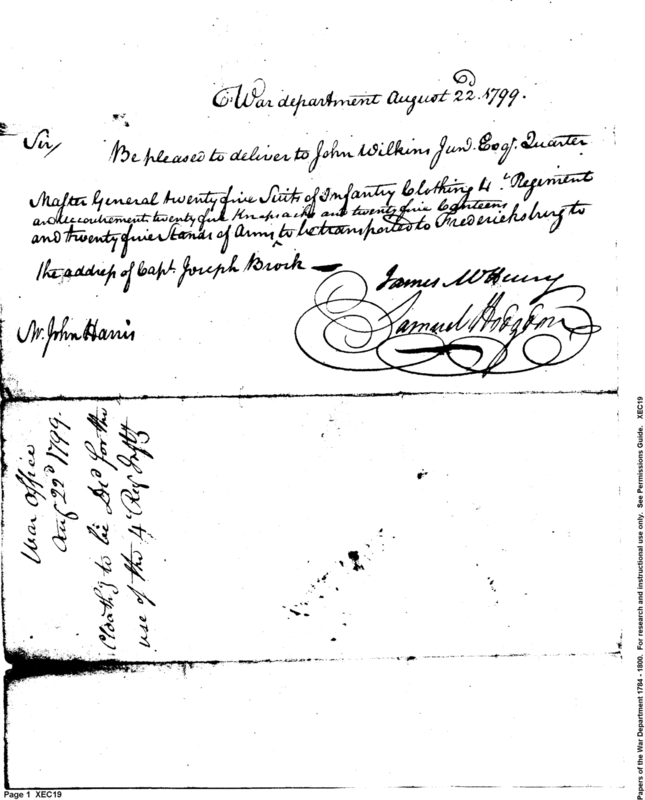 War department August 22d. 1799.
Sir/
Be pleased to deliver to John Wilkins Junr. Esqr. Quarter
Master General twenty five Suits of Infantry Clothing 4th Regiment
and accoutrement twenty five Knapsacks and twenty five Canteens
and twenty five Stands of Arms to be transported to Fredericksburg to
the address of Capt. Joseph Brock
James McHenry
Samuel Hodgdon
Mr. John Harris
War Office
Aug 22d 1799.
Cloathg to be Dd for the
use of the 4t Reg Infty
Page 1 XEC19
Papers of the War Department 1784 - 1800. For research and instructional use only. See Permissions Guide. XEC19